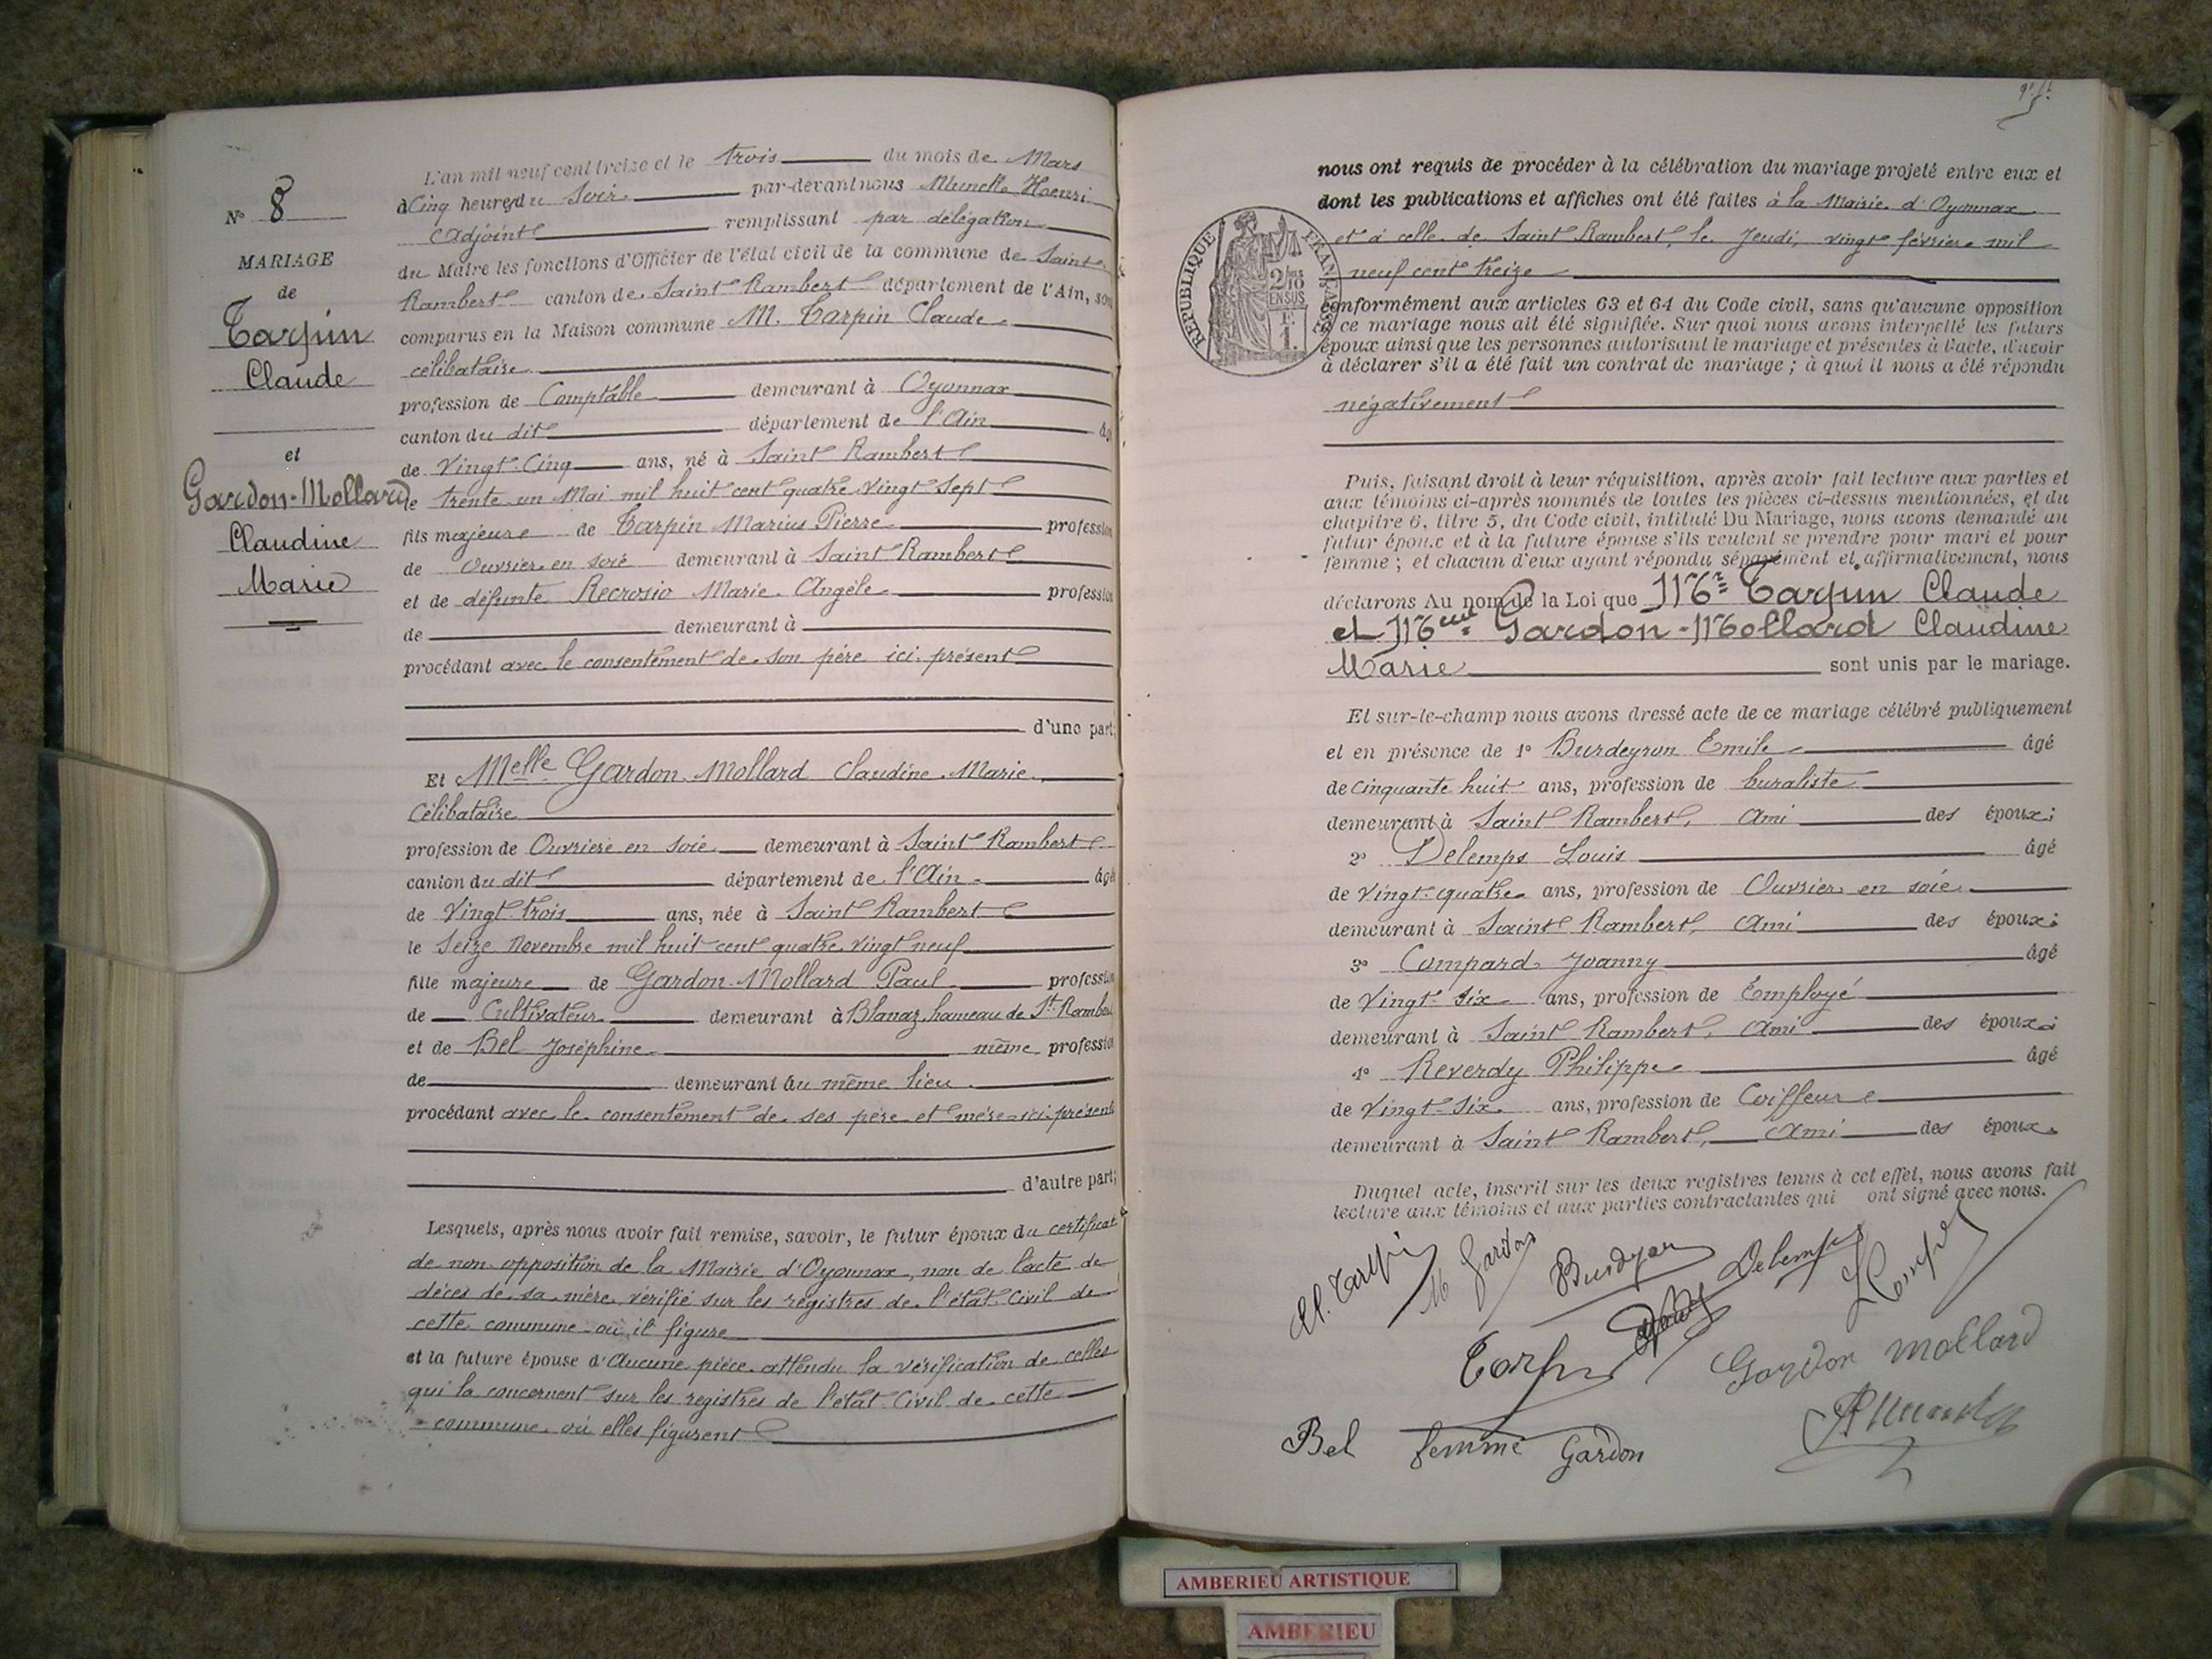 N° 8
MARIAGE
de
Tarpin
Claude
et
Gardon-Mollard
Claudine
Marie
L'an mil neuf cent treize et le trois du mois de Mars
à Cinq heures du Soir par-devant nous Munella Henri
Adjoint remplissant par délégation
du Maire les fonctions d'Officier de l'état civil de la commune de Saint
Rambert canton de Saint Rambert département de l'Ain, son
comparus en la Maison commune M. Tarpin Claude
célibataire
profession de Comptable demeurant à Oyonnax
canton du dit département de l'Ain âgé
de Vingt-Cinq ans, né à Saint Rambert
le trente-un Mai mil huit cent quatre-vingt Sept
fils majeure de Tarpin Marius Pierre profession
de Ouvrier en soie demeurant à Saint Rambert
et de défunte Recrosio Marie Angèle profession
de demeurant à
procédant avec le consentement de son père ici présent
d'une part;
Et Melle Gardon-Mollard Claudine Marie
Célibataire
profession de Ouvrière en soie demeurant à Saint Rambert
canton du dit département de l'Ain âgé
de Vingt-trois ans, née à Saint Rambert
le Seize Novembre mil huit cent quatre-vingt neuf
fille majeure de Gardon-Mollard Paul profession
de Cultivateur demeurant à Blanaz, hameau de St Rambert
et de Bel Joséphine même profession
de demeurant au même lieu
procédant avec le consentement de ses père et mère ici présents
d'autre part;
Lesquels, après nous avoir fait remise, savoir, le futur époux du certificat
de non opposition de la Mairie d'Oyonnax, non de l'acte de
décès de sa mère vérifié sur les registres de l'état-Civil de
cette commune où il figure
et la future épouse d'Aucune pièce attendu la vérification de celles
qui la concernent sur les registres de l'état-Civil de cette
commune où elles figurent
nous ont requis de procéder à la célébration du mariage projeté entre eux et
dont les publications et affiches ont été faites à la Mairie d'Oyonnax
et à celle de Saint Rambert, le Jeudi, vingt février mil
neuf cent treize
RÉPUBLIQUE FRANÇAISE
2/10
EN SUS
1 F.
conformément aux articles 63 et 64 du Code civil, sans qu'aucune opposition
à ce mariage nous ait été signifiée. Sur quoi nous avons interpellé les futurs
époux ainsi que les personnes autorisant le mariage et présentes à l'acte, d'avoir
à déclarer s'il a été fait un contrat de mariage ; à quoi il nous a été répondu
négativement
Puis, faisant droit à leur réquisition, après avoir fait lecture aux parties et
aux témoins ci-après nommés de toutes les pièces ci-dessus mentionnées, et du
chapitre 6, titre 5, du Code civil, intitulé Du Mariage, nous avons demandé au
futur époux et à la future épouse s'ils veulent se prendre pour mari et pour
femme ; et chacun d'eux ayant répondu séparément et affirmativement, nous
déclarons Au nom de la Loi que Mr Tarpin Claude
et Melle Gardon-Mollard Claudine
Marie sont unis par le mariage.
Et sur-le-champ nous avons dressé acte de ce mariage célébré publiquement
et en présence de 1° Burdeyron Emile âgé
de cinquante huit ans, profession de buraliste
demeurant à Saint Rambert, Ami des époux;
2° Delemps Louis âgé
de vingt-quatre ans, profession de Ouvrier en soie
demeurant à Saint Rambert, Ami des époux;
3° Compard Joanny âgé
de Vingt-six ans, profession de Employé
demeurant à Saint Rambert, Ami des époux;
4° Reverdy Philippe âgé
de Vingt-Six ans, profession de Coiffeur
demeurant à Saint Rambert, Ami des époux.
Duquel acte, inscrit sur les deux registres tenus à cet effet, nous avons fait
lecture aux témoins et aux parties contractantes qui ont signé avec nous.
Cl. Tarpin M Gardon Burdeyron Delemps
Tarpin Gardon Mollard
Bel femme Gardon
AMBERIEU ARTISTIQUE
AMBERIEU